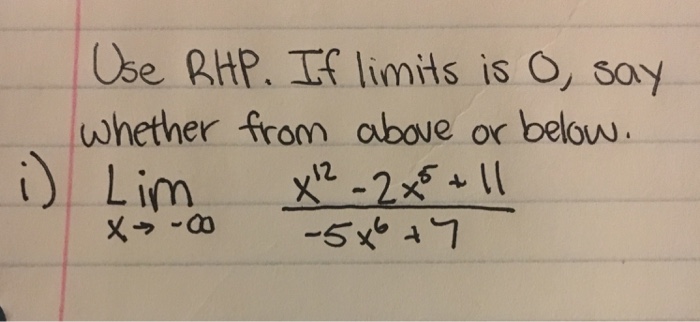 Use RHP. If limits is 0, say
whether from above or below.
i) Lim x→-∞ (x^12 - 2x^5 + 11)/(-5x^6 + 7)